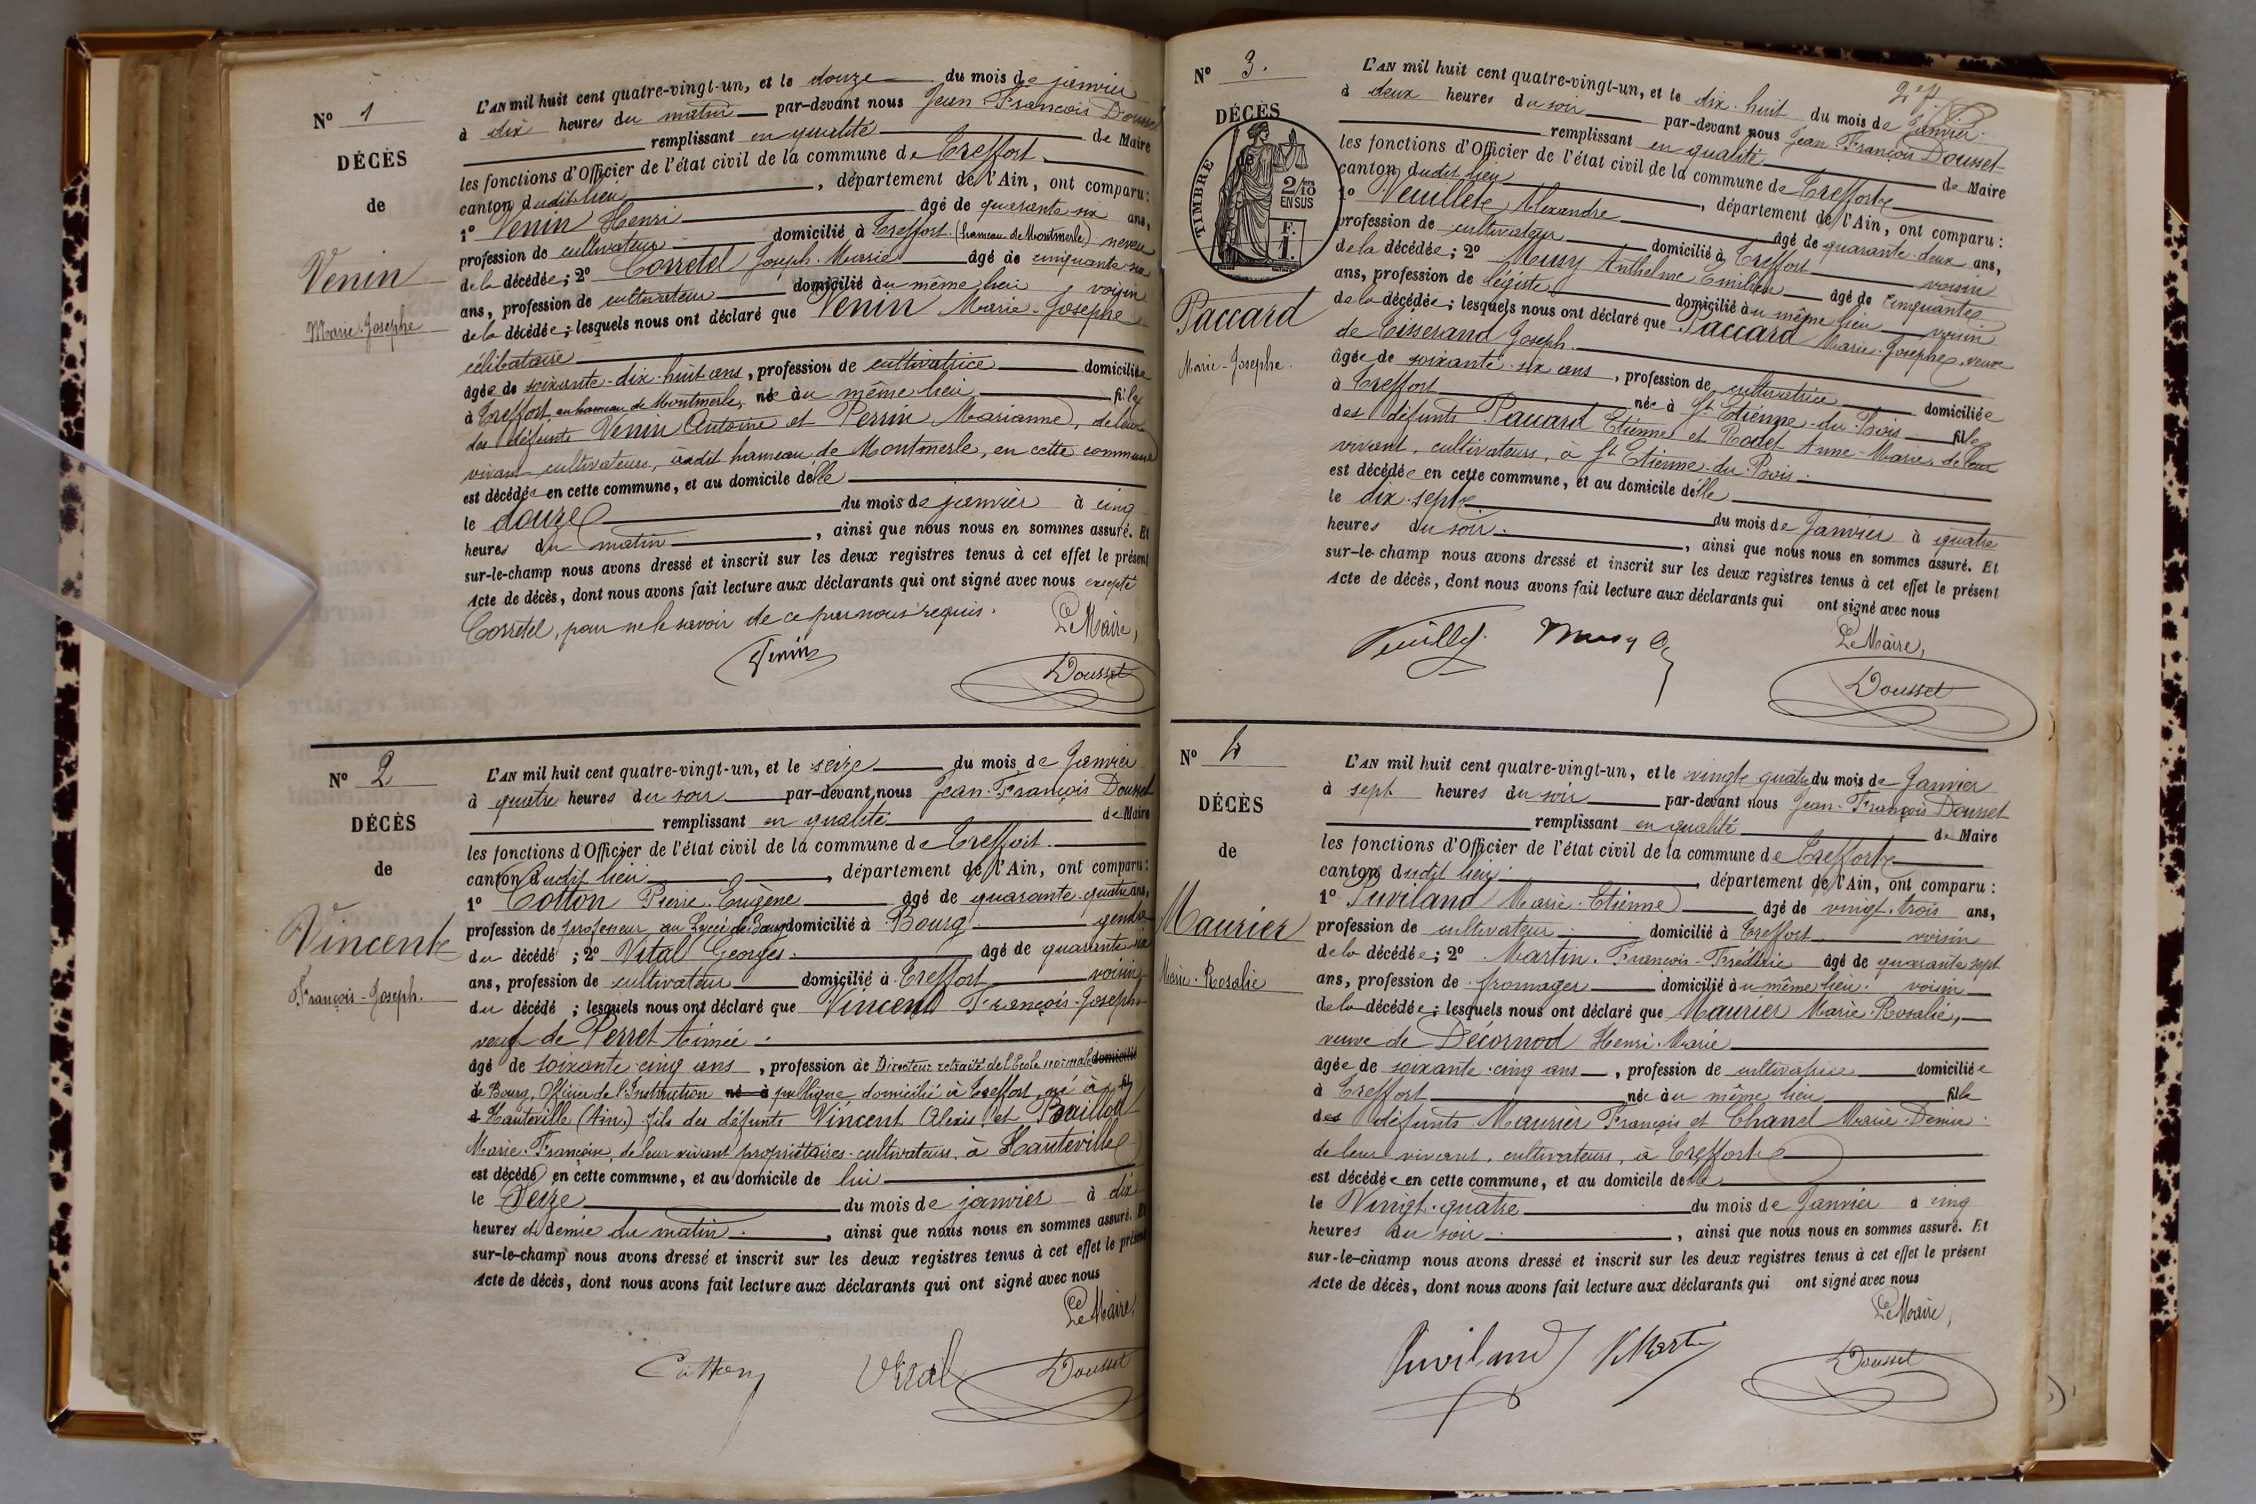 N° 1
DÉCÈS
de
Venin
Marie-Josephe
L'AN mil huit cent quatre-vingt-un, et le douze du mois de janvier
à dix heures du matin par-devant nous Jean François Dousset
remplissant en qualité de Maire
les fonctions d'Officier de l'état civil de la commune de Treffort
canton dudit lieu, département de l'Ain, ont comparu:
1° Venin Henri âgé de quarante six ans,
profession de cultivateur domicilié à Treffort (hameau de Montmerle) neveu
de la décédée; 2° Corretel Joseph-Marie âgé de cinquante six
ans, profession de cultivateur domicilié au même lieu voisin
de la décédée; lesquels nous ont déclaré que Venin Marie-Josephe
célibataire
âgée de soixante-dix-huit ans, profession de cultivatrice domiciliée
à Treffort, au hameau de Montmerle, née au même lieu fille
des défunts Venin Antoine et Perrin Marianne, de leur
vivant cultivateurs, audit hameau de Montmerle, en cette commune
est décédée en cette commune, et au domicile d'elle
le douze du mois de janvier à cinq
heures du matin, ainsi que nous nous en sommes assuré. Et
sur-le-champ nous avons dressé et inscrit sur les deux registres tenus à cet effet le présent
Acte de décès, dont nous avons fait lecture aux déclarants qui ont signé avec nous excepté
Corretel, pour ne le savoir de ce par nous requis.
Le Maire,
Venin
Dousset
N° 2
DÉCÈS
de
Vincent
François-Joseph.
L'AN mil huit cent quatre-vingt-un, et le seize du mois de Janvier
à quatre heures du soir par-devant nous Jean-François Dousset
remplissant en qualité de Maire
les fonctions d'Officier de l'état civil de la commune de Treffort
canton dudit lieu, département de l'Ain, ont comparu:
1° Cotton Pierre-Eugène âgé de quarante-quatre ans,
profession de professeur au Lycée de Bourg domicilié à Bourg gendre
du décédé; 2° Vital Georges âgé de quarante six
ans, profession de cultivateur domicilié à Treffort voisin
du décédé; lesquels nous ont déclaré que Vincent François-Joseph
veuf de Perret Aimée
âgé de soixante-cinq ans, profession de Directeur retraité de l'Ecole normale domicilié
de Bourg, Officier de l'Instruction né à publique domicilié à Treffort, né à fils
à Hauteville (Ain.) fils des défunts Vincent Alexis et
Marie-Françoise, de leur vivant propriétaires-cultivateurs, à Hauteville
est décédé en cette commune, et au domicile de lui
le Seize du mois de janvier à dix
heures et demie du matin, ainsi que nous nous en sommes assuré. Et
sur-le-champ nous avons dressé et inscrit sur les deux registres tenus à cet effet le présent
Acte de décès, dont nous avons fait lecture aux déclarants qui ont signé avec nous
Le Maire,
Cotton Vital Dousset
2e f.
N° 3.
DÉCÈS
TIMBRE
2/10 EN SUS
F. 1.
Paccard
Marie-Josephe.
L'AN mil huit cent quatre-vingt-un, et le dix-huit du mois de Janvier
à deux heures du soir par-devant nous Jean François Dousset
remplissant en qualité de Maire
les fonctions d'Officier de l'état civil de la commune de Treffort
canton dudit lieu, département de l'Ain, ont comparu:
1° Veuillet Alexandre âgé de quarante-deux ans,
profession de cultivateur domicilié à Treffort voisin
de la décédée; 2° Musy Anthelme Emilien âgé de cinquante
ans, profession de légiste domicilié au même lieu voisin
de la décédée; lesquels nous ont déclaré que Paccard Marie-Josephe, veuve
de Tisserand Joseph.
âgée de soixante-six ans, profession de cultivatrice domiciliée
à Treffort née à St Etienne-du-Bois fille
des défunts Paccard Etienne et Rodet Anne-Marie, de leur
vivant, cultivateurs, à St Etienne-du-Bois.
est décédée en cette commune, et au domicile d'elle
le dix-sept du mois de Janvier à quatre
heures du soir, ainsi que nous nous en sommes assuré. Et
sur-le-champ nous avons dressé et inscrit sur les deux registres tenus à cet effet le présent
Acte de décès, dont nous avons fait lecture aux déclarants qui ont signé avec nous
Le Maire,
Musy
Dousset
N° 4
DÉCÈS
de
Maurier
Marie-Rosalie
L'AN mil huit cent quatre-vingt-un, et le vingt quatre du mois de Janvier
à sept heures du soir par-devant nous Jean-François Dousset
remplissant en qualité de Maire
les fonctions d'Officier de l'état civil de la commune de Treffort
canton dudit lieu, département de l'Ain, ont comparu:
1° Puviland Marie-Etienne âgé de vingt-trois ans,
profession de cultivateur domicilié à Treffort voisin
de la décédée; 2° Martin François-Frédéric âgé de quarante sept
ans, profession de fromager domicilié au même lieu voisin
de la décédée; lesquels nous ont déclaré que Maurier Marie-Rosalie,
veuve de Décornod Henri-Marie
âgée de soixante-cinq ans, profession de cultivatrice domiciliée
à Treffort née au même lieu fille
des défunts Maurier François et Chanel Marie-Denise
de leur vivant, cultivateurs, à Treffort
est décédée en cette commune, et au domicile d'elle
le Vingt-quatre du mois de Janvier à cinq
heures du soir, ainsi que nous nous en sommes assuré. Et
sur-le-champ nous avons dressé et inscrit sur les deux registres tenus à cet effet le présent
Acte de décès, dont nous avons fait lecture aux déclarants qui ont signé avec nous
Le Maire,
Puviland Martin
Dousset